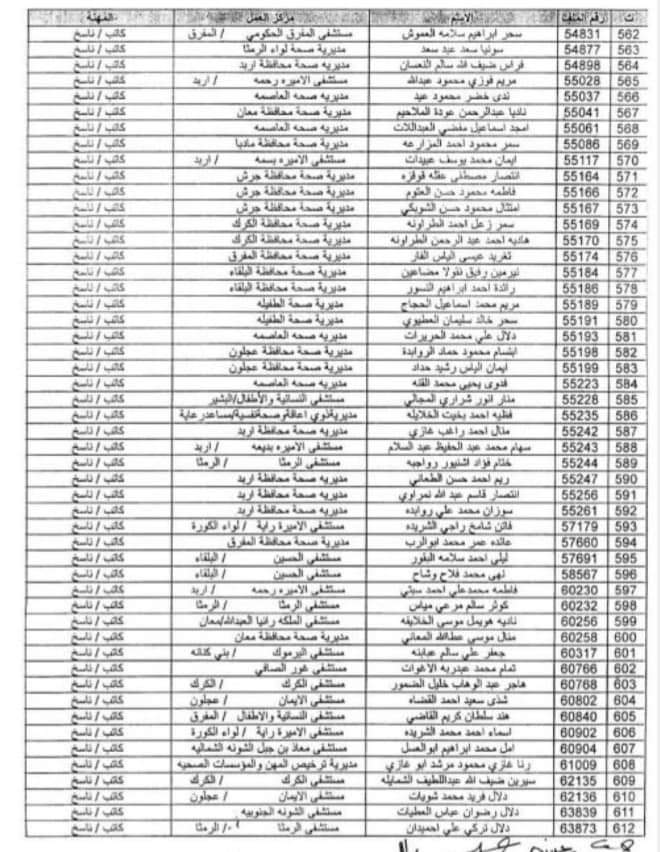 ت رقم الملف الاسم مركز العمل المهنة
562 54831 سحر ابراهيم سلامه العموش مستشفى المفرق الحكومي / المفرق كاتب / ناسخ
563 54877 سونيا سعد عيد سعد مديرية صحة لواء الرمثا كاتب / ناسخ
564 54898 فراس ضيف الله سالم النعسان مديريه صحة محافظة اربد كاتب / ناسخ
565 55028 مريم فوزي محمود عبدالله مستشفى الاميره رحمه / اربد كاتب / ناسخ
566 55037 ندى خضر محمود عيد مديريه صحه العاصمه كاتب / ناسخ
567 55041 ناديا عبدالرحمن عودة الملاحيم مديرية صحة محافظة معان كاتب / ناسخ
568 55061 امجد اسماعيل مفضي العبداللات مديريه صحه العاصمه كاتب / ناسخ
569 55086 سمر محمود احمد المزارعه مديرية صحة محافظة مادبا كاتب / ناسخ
570 55117 ايمان محمد يوسف عبيدات مستشفى الاميره بسمه / اربد كاتب / ناسخ
571 55164 انتصار مصطفى عقله قوقزه مديرية صحة محافظة جرش كاتب / ناسخ
572 55166 فاطمه محمود حسن العتوم مديرية صحة محافظة جرش كاتب / ناسخ
573 55167 امتثال محمود حسن الشوبكي مديرية صحة محافظة جرش كاتب / ناسخ
574 55169 سمر زعل احمد الطراونه مديرية صحة محافظة الكرك كاتب / ناسخ
575 55170 هاديه احمد عبد الرحمن الطراونه مديرية صحة محافظة الكرك كاتب / ناسخ
576 55174 تغريد عيسى الياس الفار مديرية صحة محافظة المفرق كاتب / ناسخ
577 55184 نيرمين رفيق نقولا مضاعين مديرية صحة محافظة البلقاء كاتب / ناسخ
578 55186 رائدة احمد ابراهيم النسور مديرية صحة محافظة البلقاء كاتب / ناسخ
579 55189 مريم محمد اسماعيل الحجاج مديرية صحة الطفيله كاتب / ناسخ
580 55191 سحر خالد سليمان العطيوي مديرية صحة الطفيله كاتب / ناسخ
581 55193 دلال علي محمد الحريرات مديريه صحه العاصمه كاتب / ناسخ
582 55198 ابتسام محمود حماد الروابدة مديرية صحة محافظة عجلون كاتب / ناسخ
583 55199 ايمان الياس رشيد حداد مديرية صحة محافظة عجلون كاتب / ناسخ
584 55223 فدوى يحيى محمد القنه مديريه صحه العاصمه كاتب / ناسخ
585 55228 منار انور شراري المجالي مستشفى النسائية والأطفال/البشير كاتب / ناسخ
586 55235 فظيه احمد بخيت الخلايله مديريةذوي اعاقة وصحةنفسية/مساعدرعاية كاتب / ناسخ
587 55242 منال احمد راغب غازي مديريه صحة محافظة اربد كاتب / ناسخ
588 55243 سهام محمد عبد الحفيظ عبد السلام مستشفى الاميره بديعه / اربد كاتب / ناسخ
589 55244 ختام فؤاد اشنيور رواجبه مستشفى الرمثا / الرمثا كاتب / ناسخ
590 55247 ريم احمد حسن الطعاني مديريه صحة محافظة اربد كاتب / ناسخ
591 55256 انتصار قاسم عبد الله نمراوي مديريه صحة محافظة اربد كاتب / ناسخ
592 55261 سوزان محمد علي روابده مديريه صحة محافظة اربد كاتب / ناسخ
593 57179 فاتن شامخ راجي الشريده مستشفى الاميرة راية / لواء الكورة كاتب / ناسخ
594 57660 عائده عمر محمد ابوالرب مديرية صحة محافظة المفرق كاتب / ناسخ
595 57691 ليلى احمد سلامه البقور مستشفى الحسين / البلقاء كاتب / ناسخ
596 58567 نهى محمد فلاح وشاح مستشفى الحسين / البلقاء كاتب / ناسخ
597 60230 فاطمه محمدعلي احمد سبتي مستشفى الاميره رحمه / اربد كاتب / ناسخ
598 60232 كوثر سالم مرعي مياس مستشفى الرمثا / الرمثا كاتب / ناسخ
599 60256 ناديه هويمل موسى الخلايفه مستشفى الملكه رانيا العبدالله/معان كاتب / ناسخ
600 60258 منال موسى عطاالله المعاني مديرية صحة محافظة معان كاتب / ناسخ
601 60317 جعفر علي سالم عبابنه مستشفى اليرموك / بني كنانه كاتب / ناسخ
602 60766 تمام محمد عبدربه الاغوات مستشفى غور الصافي كاتب / ناسخ
603 60768 هاجر عبد الوهاب خليل الضمور مستشفى الكرك / الكرك كاتب / ناسخ
604 60802 شذى سعيد احمد القضاه مستشفى الايمان / عجلون كاتب / ناسخ
605 60840 هند سلطان كريم القاضي مستشفى النسائية والاطفال / المفرق كاتب / ناسخ
606 60902 اسماء احمد محمد الشريده مستشفى الاميرة راية / لواء الكورة كاتب / ناسخ
607 60904 امل محمد ابراهيم ابوالعسل مستشفى معاذ بن جبل الشونه الشماليه كاتب / ناسخ
608 61009 رنا غازي محمود مرشد ابو غازي مديرية ترخيص المهن والمؤسسات الصحيه كاتب / ناسخ
609 62135 سيرين ضيف الله عبداللطيف الشمايله مستشفى الكرك / الكرك كاتب / ناسخ
610 62136 دلال فريد محمد شويات مستشفى الايمان / عجلون كاتب / ناسخ
611 63839 دلال رضوان عباس العطيات مستشفى الشونه الجنوبيه كاتب / ناسخ
612 63873 دلال تركي علي احميدان مستشفى الرمثا / الرمثا كاتب / ناسخ